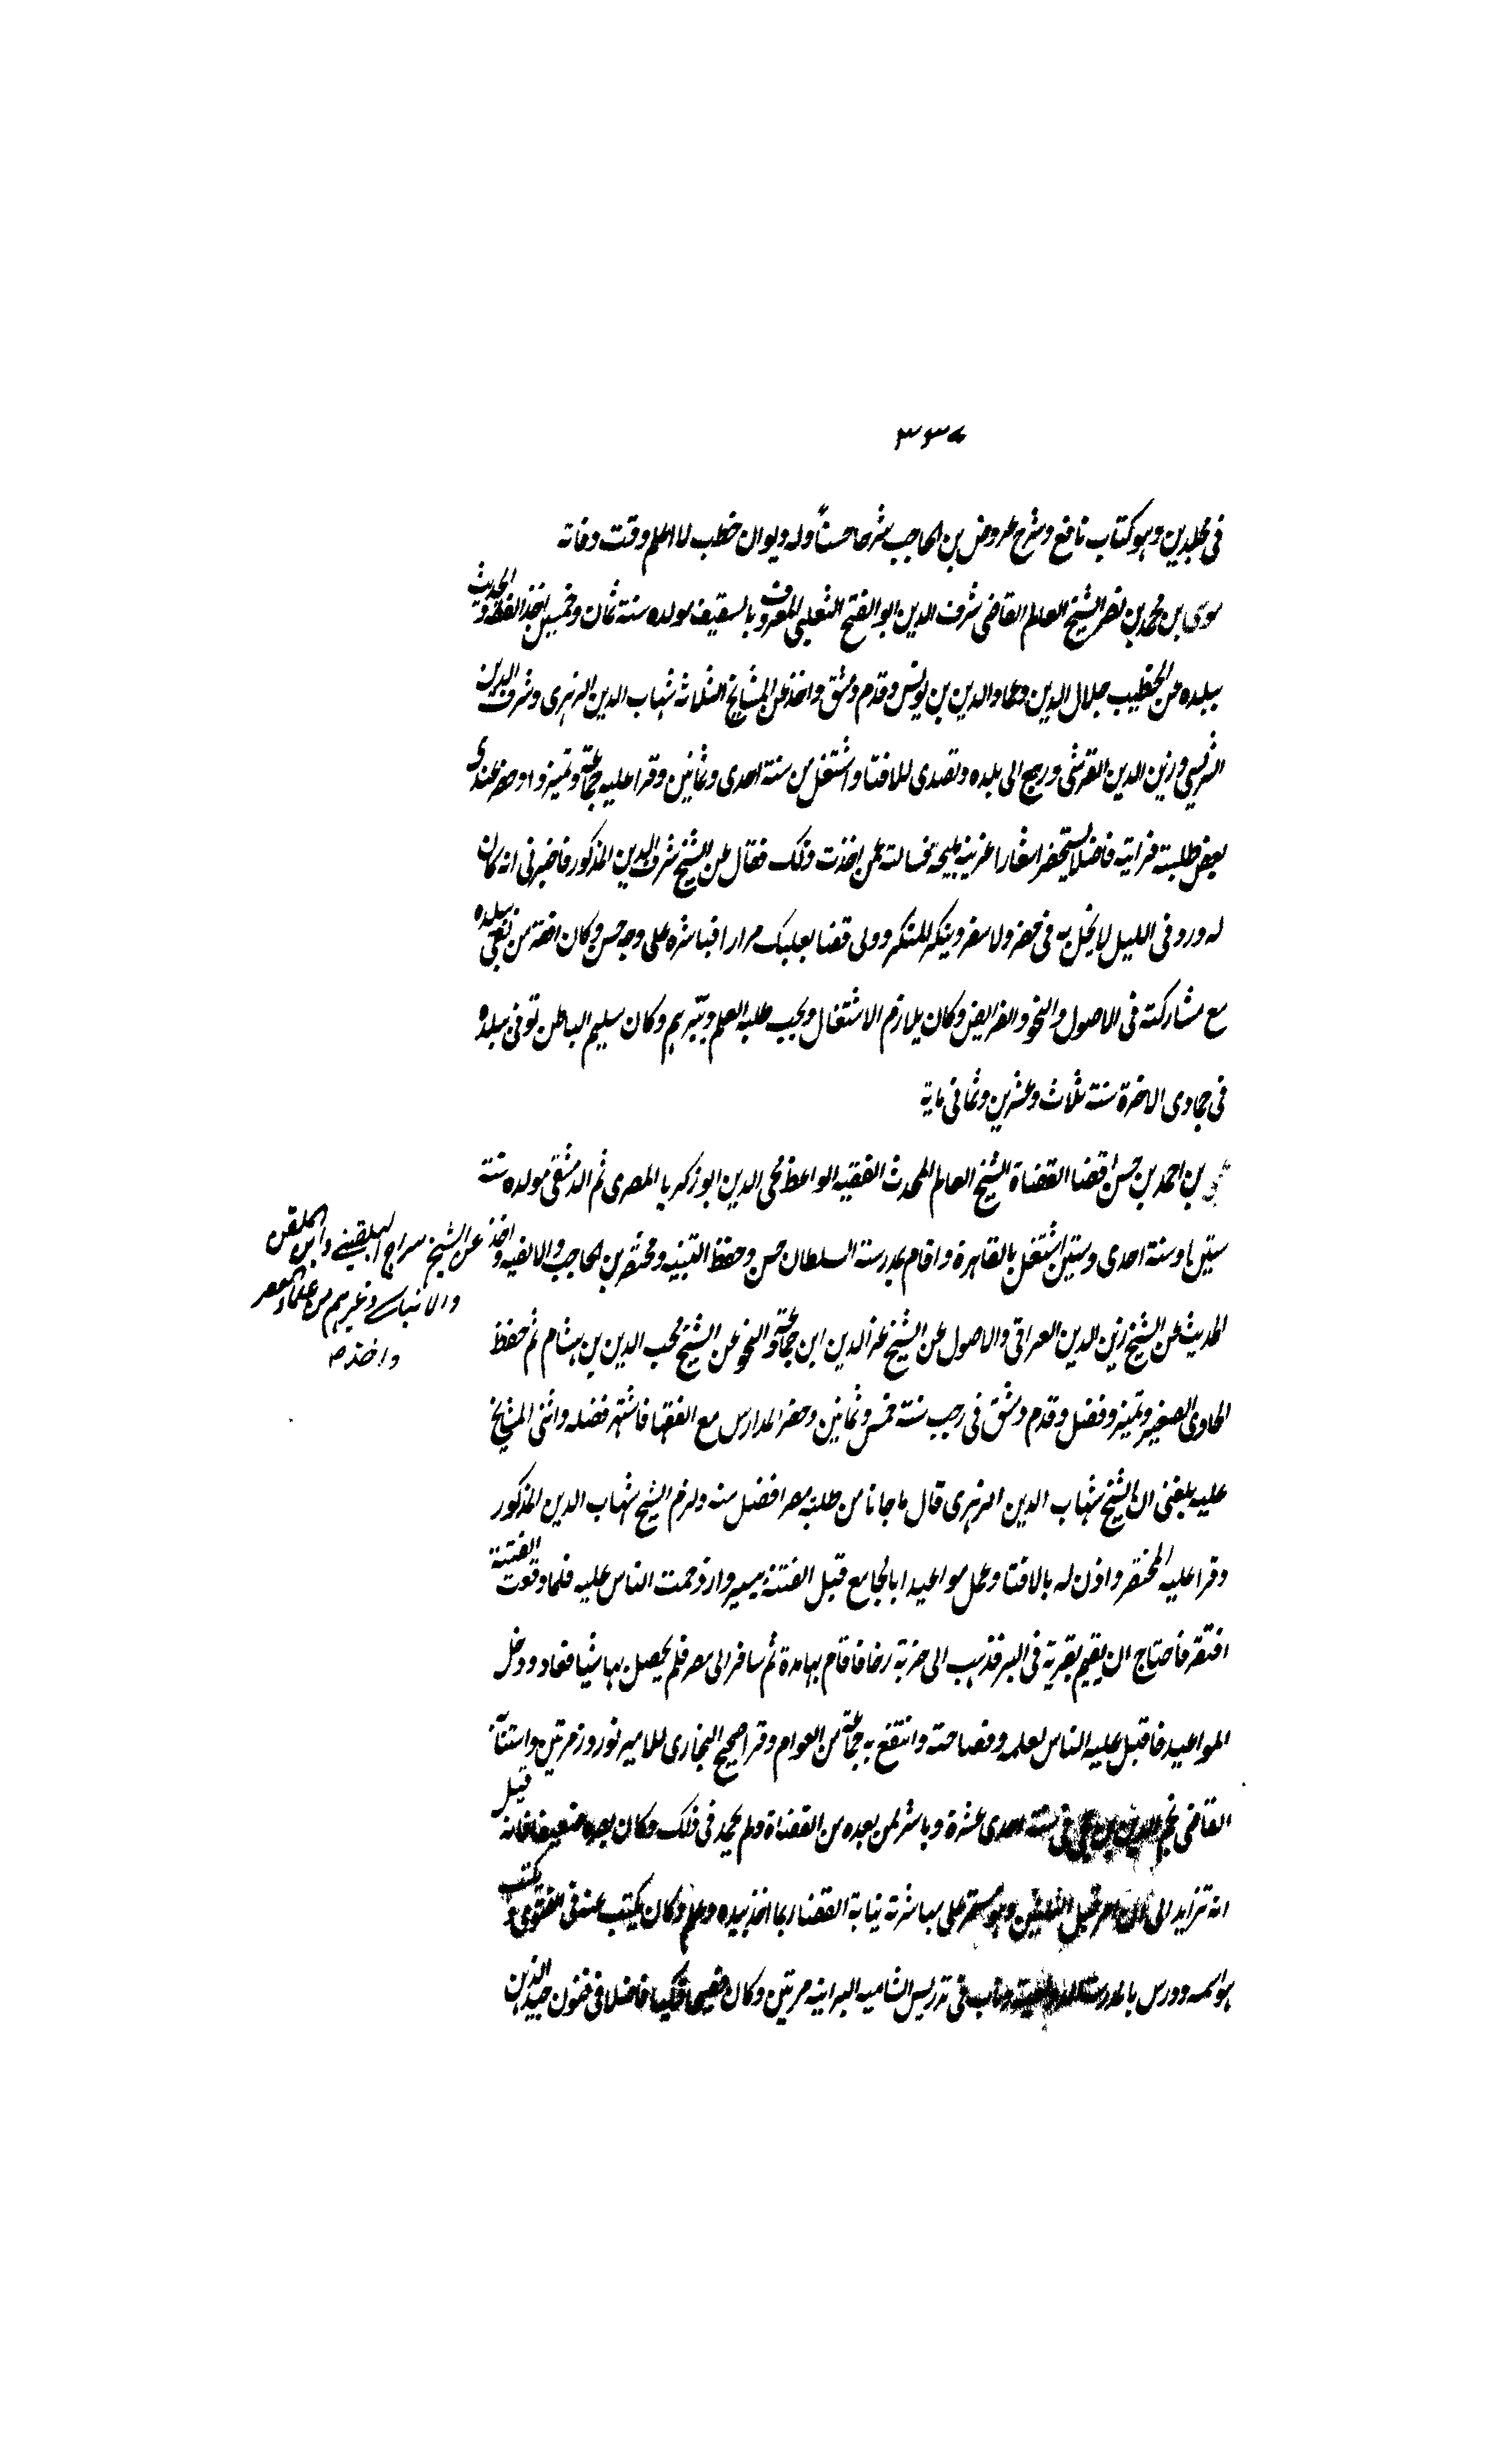 ٣٣٧
في مجلدين وهو كتاب نافع وشرح عروض بن الحاجب شرحا حسناً وله ديوان خطب لا اعلم وقت وفاته
موسى بن محمد بن نصر الشيخ العالم القاضى شرف الدين ابو الفتح الثعلبى المعروف بالسقيف مولده سنة ثمان وخمسين اخذ الفقه والحديث
ببلده عن الخطيب جلال الدين وعماد الدين بن يونس وقدم دمشق واخذ عن المشايخ الثلاثة شهاب الدين الزهرى وشرف الدين
الشريشى وزين الدين القرشى ورجع الى بلده وتصدى للافتا واشتغل من سنة احدى وثمانين وقرا عليه جماعة وتميزوا وحضر عندى
بعض طلبته فرايته فاضلا يستحضر اشعارا غريبة مليحة فسالته عمن اخذت ذلك فقال عن الشيخ شرف الدين المذكور فاخبرنى انه كان
له ورد فى الليل لا يخل به فى حضر ولا سفر وينكر المنكر وولى قضا بعلبك مرارا فباشره على وجه حسن وكان افقه من بقى ببلده
مع مشاركته فى الاصول والنحو والفرايض وكان يلازم الاشتغال ويحب طلبة العلم ويبرّهم وكان سليم الباطن توفى ببلده
فى جمادى الاخرة سنة ثلاث وعشرين وثمانى ماية
بن احمد بن حسن اقضا القضاة الشيخ العالم المحدث الفقيه الواعظ محى الدين ابو زكريا المصرى ثم الدمشقى مولده سنة
ستين او سنة احدى وستين اشتغل بالقاهرة واقام بمدرسة السلطان حسن وحفظ التنبيه ومختصر بن الحاجب والالفيه واخذ
عن الشيخ سراج البلقينى وابن الملقن
والابناسى وغيرهم من علماء مصر
واخذ
الحديث عن الشيخ زين الدين العراقى والاصول عن الشيخ عز الدين ابن جماعة والنحو عن الشيخ محب الدين بن هشام ثم حفظ
الحاوى الصغير وتميز وفضل وقدم دمشق فى رجب سنة خمس وثمانين وحضر المدارس مع الفقها فاشتهر فضله واثنى المشايخ
عليه بلغنى ان الشيخ شهاب الدين الزهرى قال ما جانا من طلبة مصر افضل منه ولزم الشيخ شهاب الدين المذكور
وقرا عليه المختصر واذن له بالافتا وعمل مواعيدا بالجامع قبل الفتنة بيسير وازدحمت الناس عليه فلما وقعت الفتنة
افتقر فاحتاج ان يقيم بقرية فى البر فذهب الى خربة رخا فاقام بها مدة ثم سافر الى مصر فلم يحصل بها شيا فعاد ودخل
المواعيد فاقبل عليه الناس لعلمه وفصاحته وانتفع به جماعة من العوام وقرا صحيح البخارى للامير نوروز مرتين واستنابه
القاضى نجم الدين بن حجى فى سنة احدى عشرة وباشر لمن بعده من القضاة ولم يحمد فى ذلك وكان بصره ضعيفا فانه قيل
انه تزايد الى ان اضر قبل الثلثين وهو مستمر على مباشرته نيابة القضا ربما اخذ بيده وعلم وكان يكتب عنه فى الفتوى ويكتب
هو اسمه ودرس بالمدرسة وناب فى تدريس الشاميه البرانيه مرتين وكان فصيحا ذكيا فاضلا فى فنون جيد الذهن